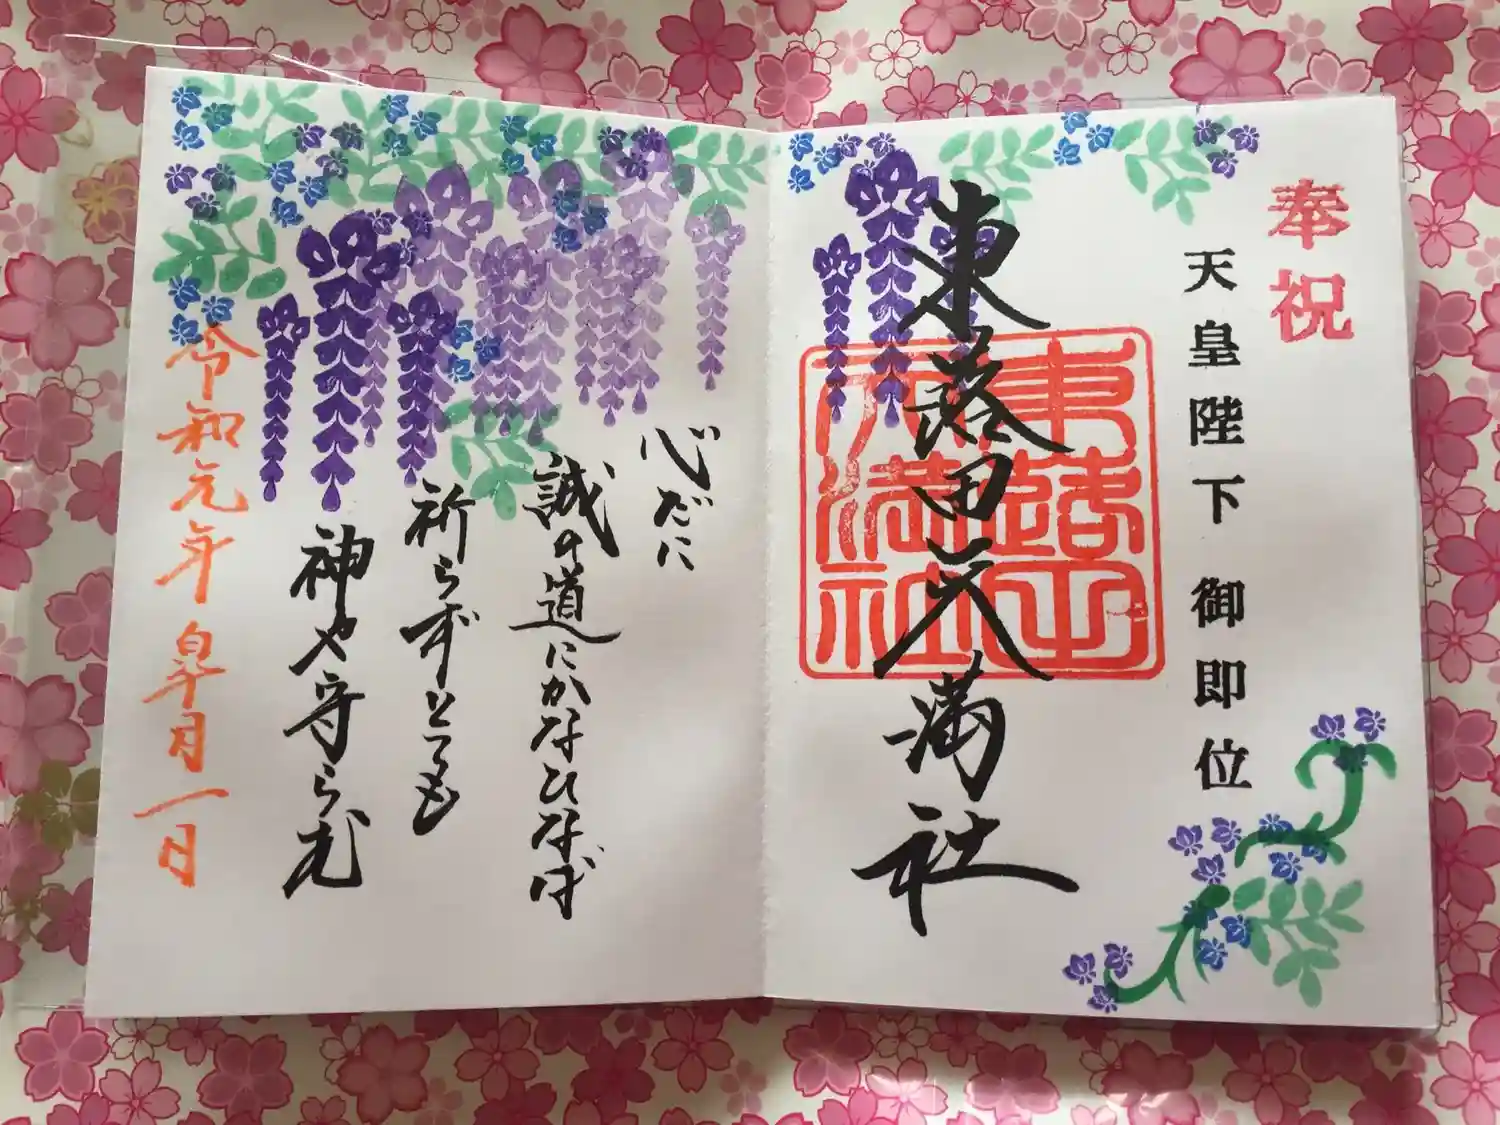 奉祝
天皇陛下 御即位
東蕗田天満社
東蕗田天満社
心だに
誠の道にかなひなば
祈らずとても
神や守らむ
令和元年皐月一日